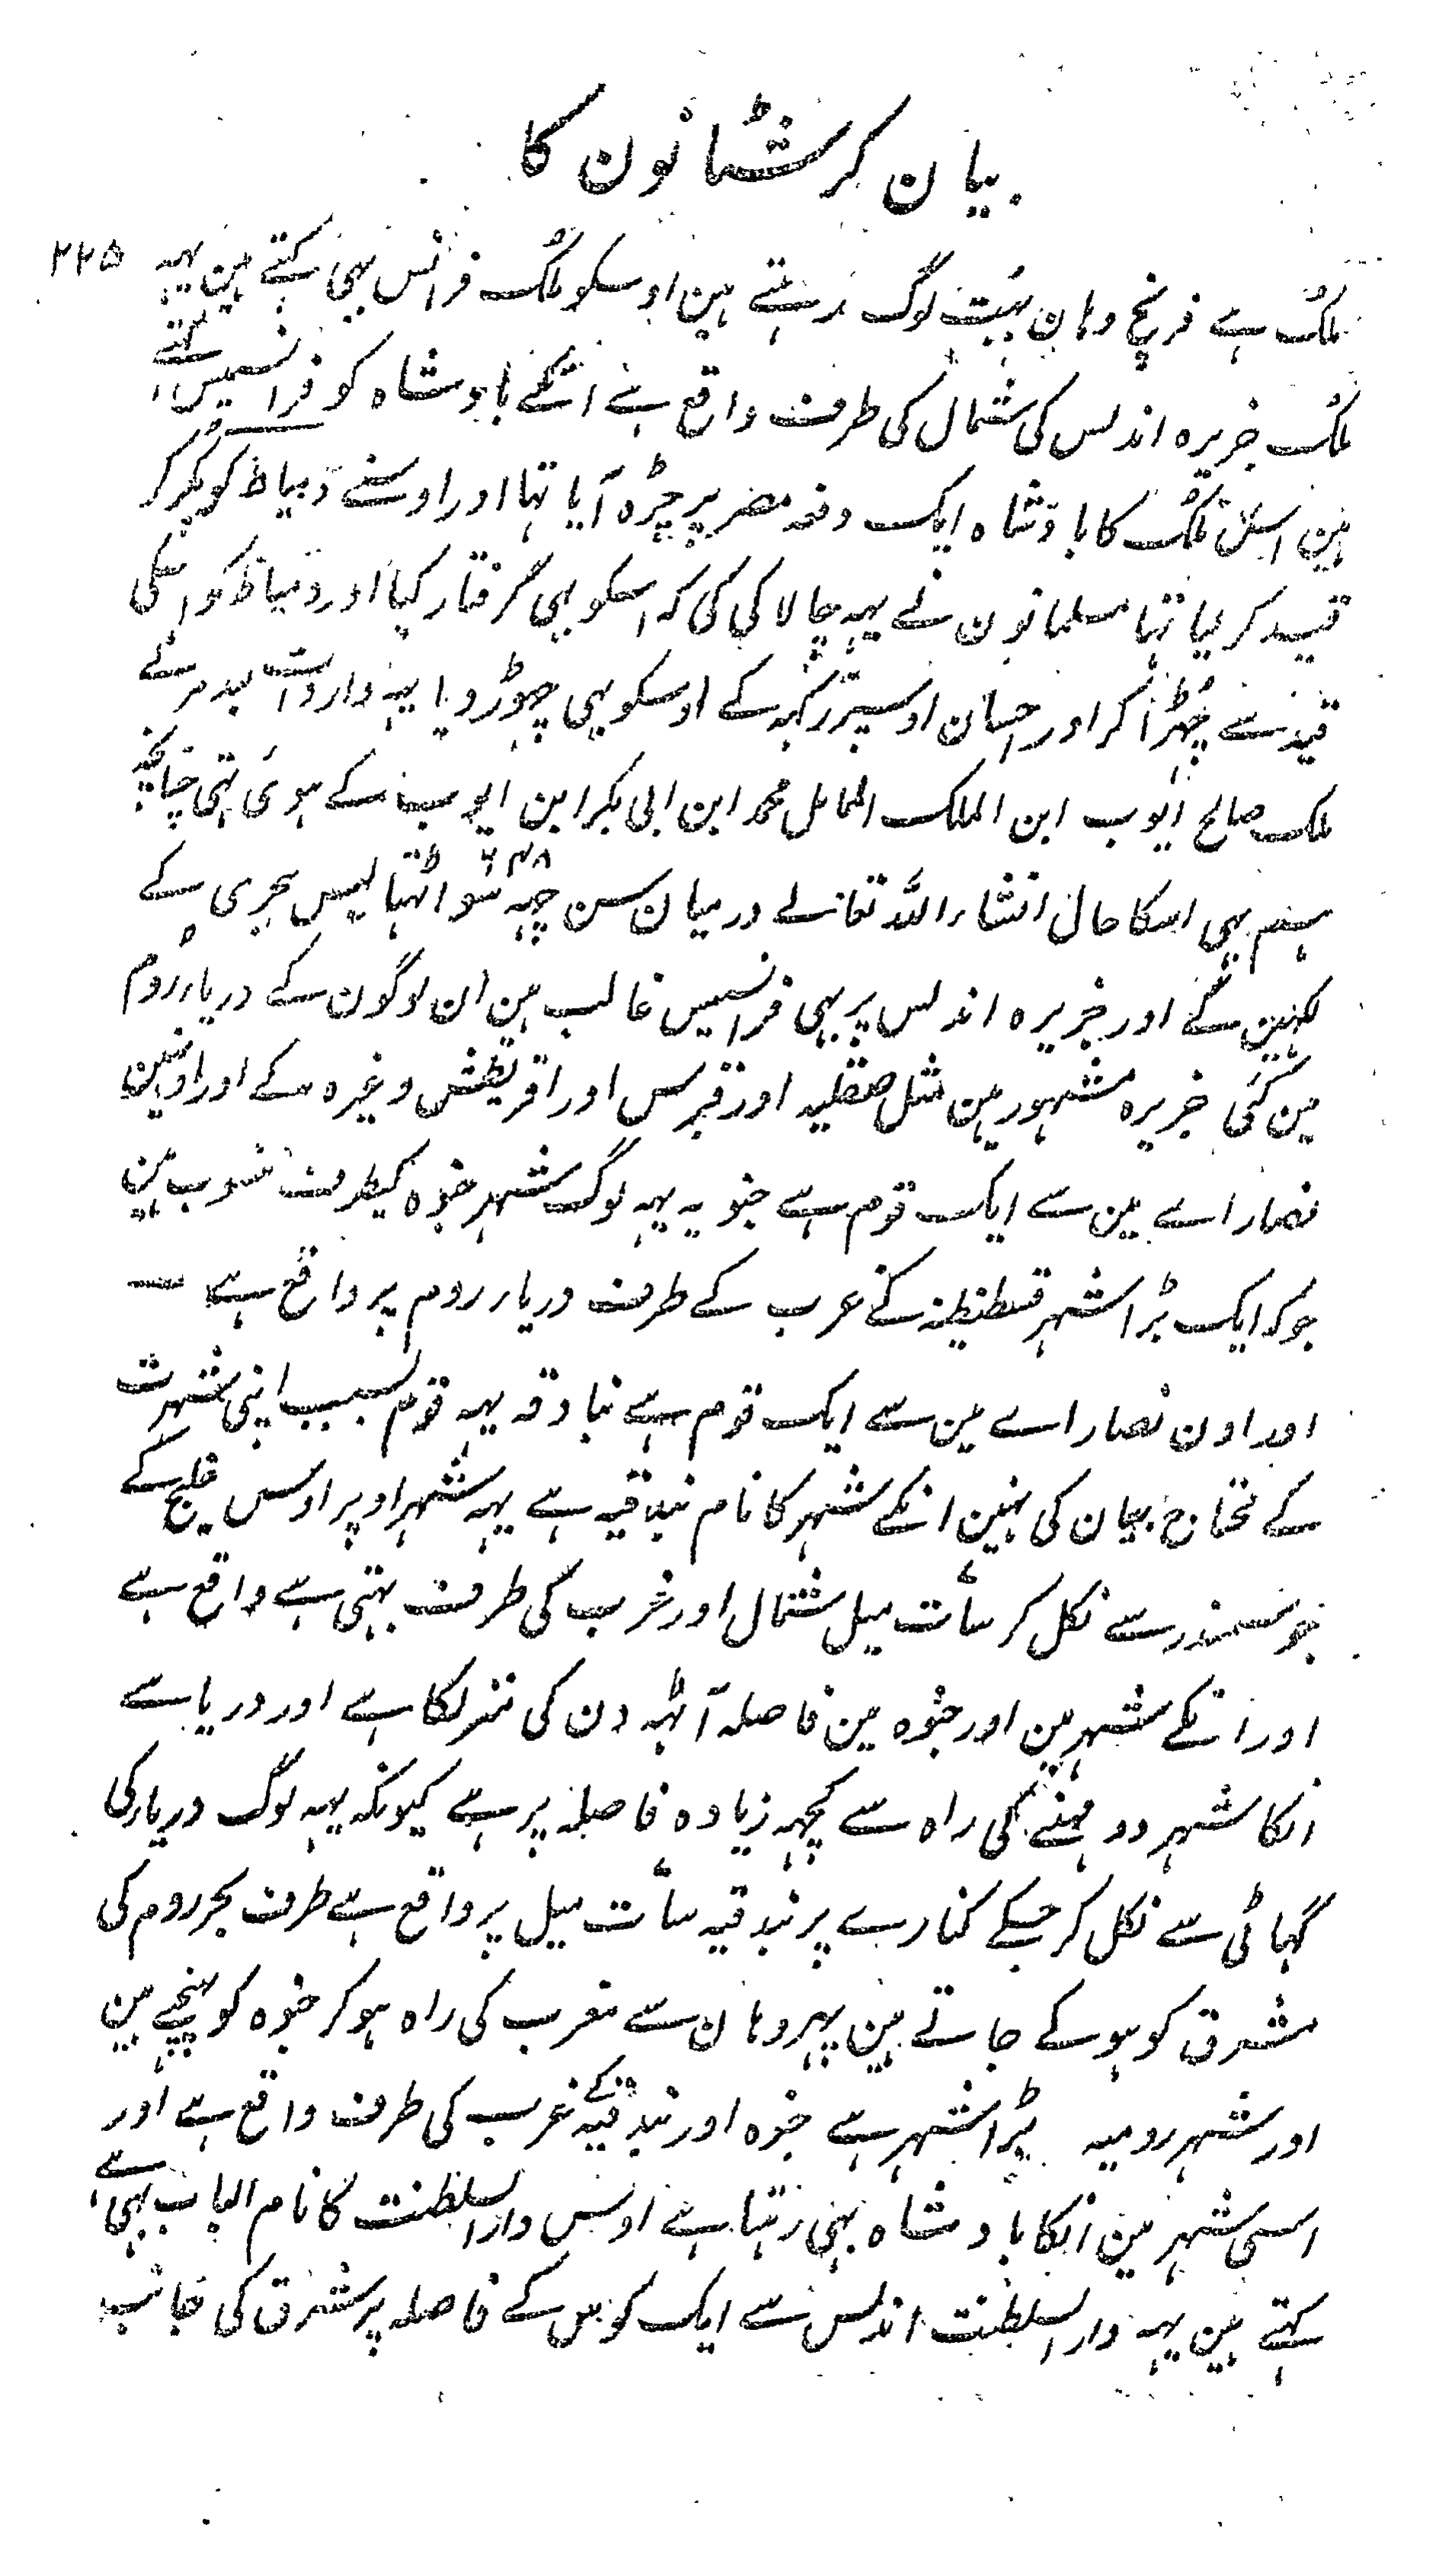 بیان کرشٹانون کا
۲۲۵
ملک ہے فرنچ وہان بہت لوگ رہتے ہین اوسکو ملک فرانس بہی کہتے ہین یہہ
ملک جزیرہ اندلس کی شمال کی طرف واقع ہے انکے بادشاہ کو فرانسیس کہتے
ہین اس ملک کا بادشاہ ایک دفعہ مصر پر چڑہ آیا تہا اور اوسنے دمیاط کو پکڑ کر
قید کر لیا تہا مسلمانون نے یہہ چالاکی کی کہ اسکو بہی گرفتار کیا اور دمیاط کو اسکی
قید سے چہڑا کر اور احسان اوسپر رکہہ کے اوسکو بہی چہوڑ دیا یہہ واردات بعد مرنے
ملک صالح ایوب ابن الملک الکامل محمد ابن ابی بکر ابن ایوب کے ہوئی تہی چنانچہ
ہم بہی اسکا حال انشاء اللہ تعالے درمیان سن چہہ سو اٹہتالیس ۶۴۸ ہجری کے
لکہین گے اور جزیرہ اندلس پر بہی فرانسیس غالب ہین ان لوگون کے دریاء روم
مین کئی جزیرہ مشہور ہین مثل صقلیہ اور قبرس اور اقریطش وغیرہ کے اور اونہین
نصارا مین سے ایک قوم ہے جنویہ یہہ لوگ شہر جنوہ کیطرف منسوب ہین
جو کہ ایک بڑا شہر قسطنطنیہ کے غرب کے طرف دریاء روم پر واقع ہے
اور اون نصارا مین سے ایک قوم ہے بنادقہ یہہ قوم بسبب اپنی شہرت
کے محتاج بیان کی نہین انکے شہر کا نام بندقیہ ہے یہہ شہر اوپر اوس خلیج کے
جو سمندر سے نکل کر سات میل شمال اور غرب کی طرف بہتی ہے واقع ہے
اور انکے شہر مین اور جنوہ مین فاصلہ آٹہہ دن کی منزلکا ہے اور دریا سے
انکا شہر دو مہینے کی راہ سے کچہہ زیادہ فاصلہ پر ہے کیونکہ یہہ لوگ دریا کی
گہاٹی سے نکل کر جسکے کنارے پر بندقیہ سات میل پر واقع ہے طرف بحر روم کی
مشرق کو ہو کے جاتے ہین پہر وہان سے مغرب کی راہ ہو کر جنوہ کو پہنچے ہین
اور شہر رومیہ بڑا شہر ہے جنوہ اور بندقیہ کے غرب کی طرف واقع ہے اور
اسی شہر مین انکا بادشاہ بہی رہتا ہے اوس دار السلطنت کا نام الباب بہی ہے
کہتے ہین یہہ دار السلطنت اندلس سے ایک کوس کے فاصلہ پر مشرق کی جانب